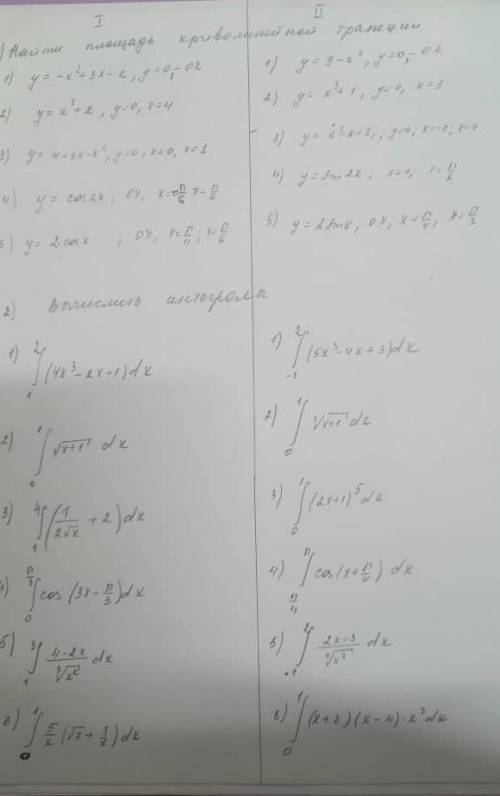 I
II
Найти площадь криволинейной трапеции
1) y = -x² + 3x - 2, y=0, - Ox
2) y = x² + 2, y=0, x=4
3) y = 4 - 3x - x², y=0, x=0, x=1.
4) y = cos2x, Ox,
5) y = 2cosx ; Ox, x = π/4; x = π/6
1) y = 9 - x², y=0, - Ox
2) y = x³ + 1, y=0, x=3
3)
4) y = sin2x, x=0, x = π/6
5) y = 2sinx, Ox, x = π/4, x = π/3
2) Вычислить интегралы
1) ∫₁² (4x³ - 2x + 1) dx
2) ∫₀¹ √(x+1) dx
3) ∫₁⁴ (1/(2√x) + 2) dx
4) ∫₀^(π/3) cos (3x - π/3) dx
5) ∫₁³ (4-2x)/∛x² dx
6) ∫₀¹ 5/x (√x + 3/x) dx
1) ∫₋₁² (5x³ - 4x + 3) dx
2) ∫₀¹ ∛(x+1) dx
3) ∫₀¹ (2x+1)⁵ dx
4) ∫ cos(x + π/4) dx
5) ∫ (2x-3)/∜x³ dx
6) ∫₀¹ (x+2)(x-4)·x² dx